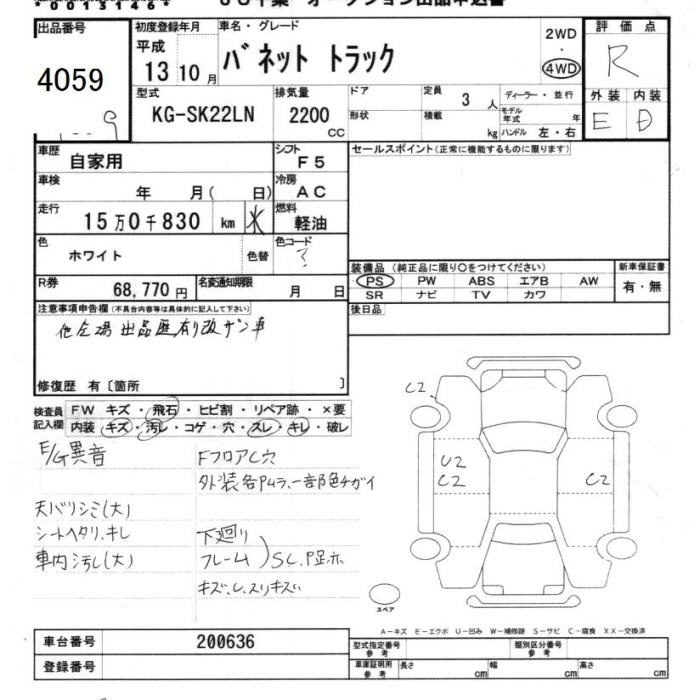 *00131464*
オークション出品申込書
出品番号
4059
初度登録年月
平成
13 10月
車名・グレード
バネット トラック
2WD
・
4WD
評価点
R
型式
KG-SK22LN
排気量
2200
CC
ドア
形状
定員
3 人
積載
kg
ディーラー・並行
モデル年式 年
ハンドル 左・右
外装 内装
E D
車歴
自家用
シフト
F5
セールスポイント(正常に機能するものに限ります)
車検
年 月( 日)
冷房
AC
走行
15万0千830 km
燃料
軽油
色
ホワイト
色替
色コード
?
装備品(純正品に限り○をつけてください)
新車保証書
PS PW ABS エアB AW
SR ナビ TV カワ
有・無
R券
68,770円
名変通知期限
月 日
後日品
注意事項申告欄(不具合内容等は具体的に記入して下さい)
他会場出品歴有り改ザン車
修復歴 有〔箇所 〕
検査員記入欄
FW キズ・飛石・ヒビ割・リペア跡・×要
内装 キズ・汚レ・コゲ・穴・スレ・キレ・破レ
E/G異音
FフロアC穴
外装各Pムラ、一部色チガイ
天バリシミ(大)
シートヘタリ.キレ
車内汚レ(大)
下廻り
フレーム
SC.P足ホ
C2
U2
C2
C2
スペア
A−キズ E−エクボ U−凹み W−補修跡 S−サビ C−腐食 XX−交換済
車台番号
200636
型式指定番号
参考
類別区分番号
参考
登録番号
車庫証明用
参考
長さ cm
幅 cm
高さ cm